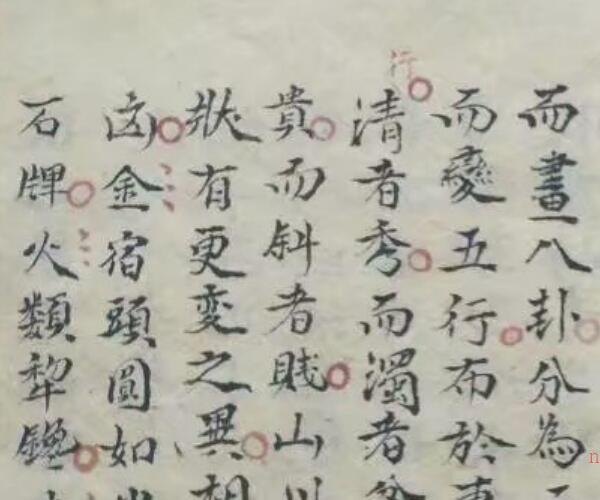 而畫八卦分為
而變五行布於
行
清者秀而濁者
貴而斜者賤山
狀有更變之異
凶金宿頭圓如
石牌火類犁鑱